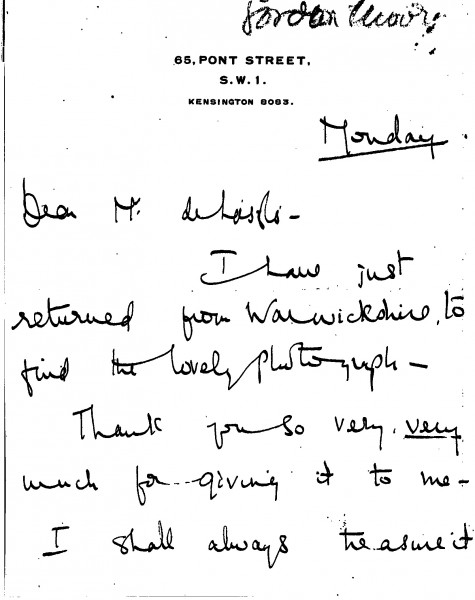 Gordon Moore
65, PONT STREET,
S.W.1.
KENSINGTON 8083.
Monday.
Dear Mr. de László -
I have just
returned from Warwickshire, to
find the lovely photograph -
Thank you so very, very
much for giving it to me -
I shall always treasure it